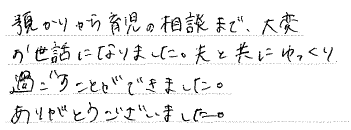 預かりから育児の相談まで、大変
お世話になりました。夫と共にゆっくり
過ごすことができました。
ありがとうございました。